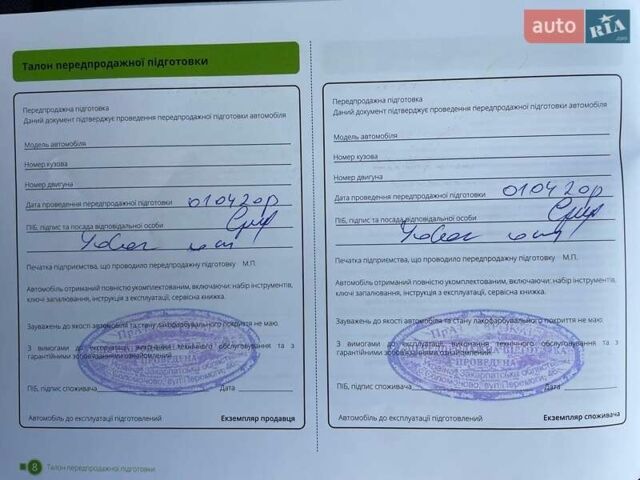 auto RIA.com
Талон передпродажної підготовки
Передпродажна підготовка
Даний документ підтверджує проведення передпродажної підготовки автомобіля
Модель автомобіля
Номер кузова
Номер двигуна
Дата проведення передпродажної підготовки 010420р
ПІБ, підпис та посада відповідальної особи
Печатка підприємства, що проводило передпродажну підготовку М.П.
Автомобіль отриманий повністю укомплектованим, включаючи: набір інструментів,
ключі запалювання, інструкція з експлуатації, сервісна книжка.
Зауважень до якості автомобіля та стану лакофарбувального покриття не маю.
З вимогами до експлуатації, виконання технічного обслуговування та з
гарантійними зобов'язаннями ознайомлений
ПІБ, підпис споживача Дата
Автомобіль до експлуатації підготовлений Екземпляр продавця
8 Талон передпродажної підготовки
Передпродажна підготовка
Даний документ підтверджує проведення передпродажної підготовки автомобіля
Модель автомобіля
Номер кузова
Номер двигуна
Дата проведення передпродажної підготовки 010420р
ПІБ, підпис та посада відповідальної особи
Печатка підприємства, що проводило передпродажну підготовку М.П.
Автомобіль отриманий повністю укомплектованим, включаючи: набір інструментів,
ключі запалювання, інструкція з експлуатації, сервісна книжка.
Зауважень до якості автомобіля та стану лакофарбувального покриття не маю.
З вимогами до експлуатації, виконання технічного обслуговування та з
гарантійними зобов'язаннями ознайомлений
ПІБ, підпис споживача Дата
Автомобіль до експлуатації підготовлений Екземпляр споживача